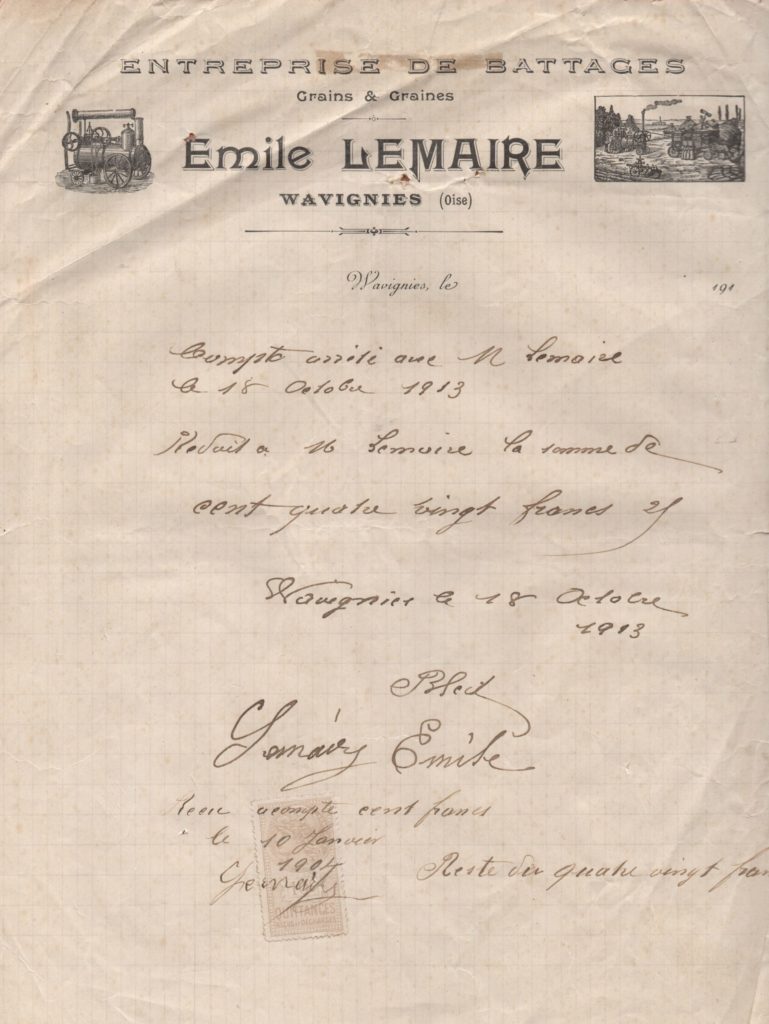 ENTREPRISE DE BATTAGES
Grains & Graines
Émile LEMAIRE
WAVIGNIES (Oise)
Wavignies, le 191
Compte arrêté avec M Lemaire
le 18 Octobre 1913
Redoit a M Lemaire la somme de
cent quatre vingt francs 25
Wavignies le 18 Octobre
1913
Lemaire Emile
Recu acompte cent francs
le 10 Janvier
Lemaire
Reste du quatre vingt fran
QUITTANCES
REÇUS ET DÉCHARGES